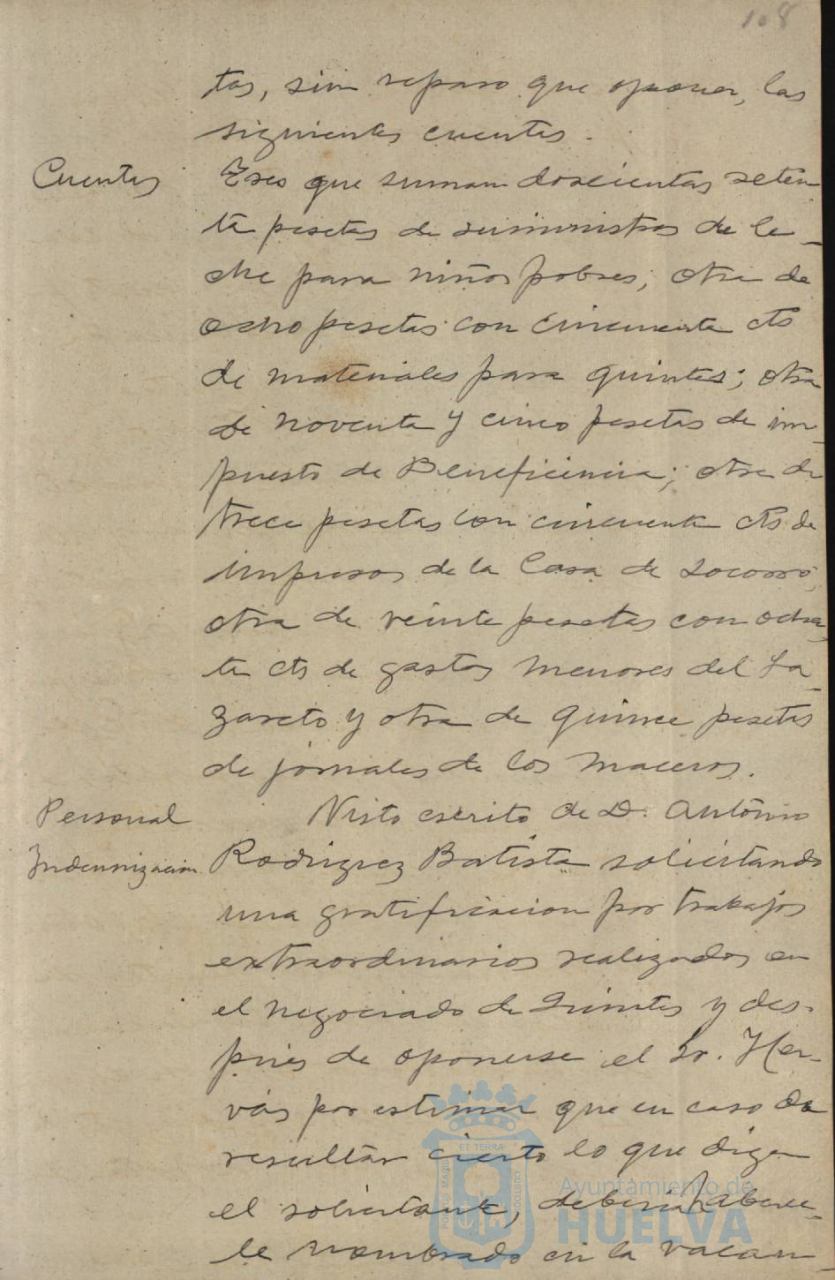 108
tas, sin reparo que oponer, las
siguientes cuentas.
Cuentas
Tres que suman doscientas seten
ta pesetas de suministros de le-
che para niños pobres; otra de
ocho pesetas con cincuenta cts
de materiales para quintas; otra
de noventa y cinco pesetas de im-
puesto de Beneficencia; otra de
trece pesetas con cincuenta cts de
impresos de la Casa de Socorro;
otra de veinte pesetas con ochen
ta cts de gastos menores del La-
zareto y otra de quince pesetas
de jornales de los maceros.
Personal
Indemnización
Visto escrito de D. Antonio
Rodriguez Batista solicitando
una gratificacion por trabajos
extraordinarios realizados en
el negociado de Quintas y des-
pues de oponerse el Sr. Her-
vás por estimar que en caso de
resultar cierto lo que dice
el solicitante, deberia haberse-
le nombrado en la vacan
Ayuntamiento de
HUELVA